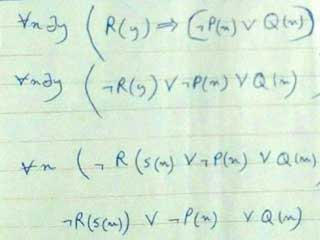 ∀x∃y (R(y) ⇒ (¬P(x) ∨ Q(x))
∀x∃y (¬R(y) ∨ ¬P(x) ∨ Q(x)
∀x (¬R(s(x) ∨ ¬P(x) ∨ Q(x)
¬R(s(x)) ∨ ¬P(x) ∨ Q(x)